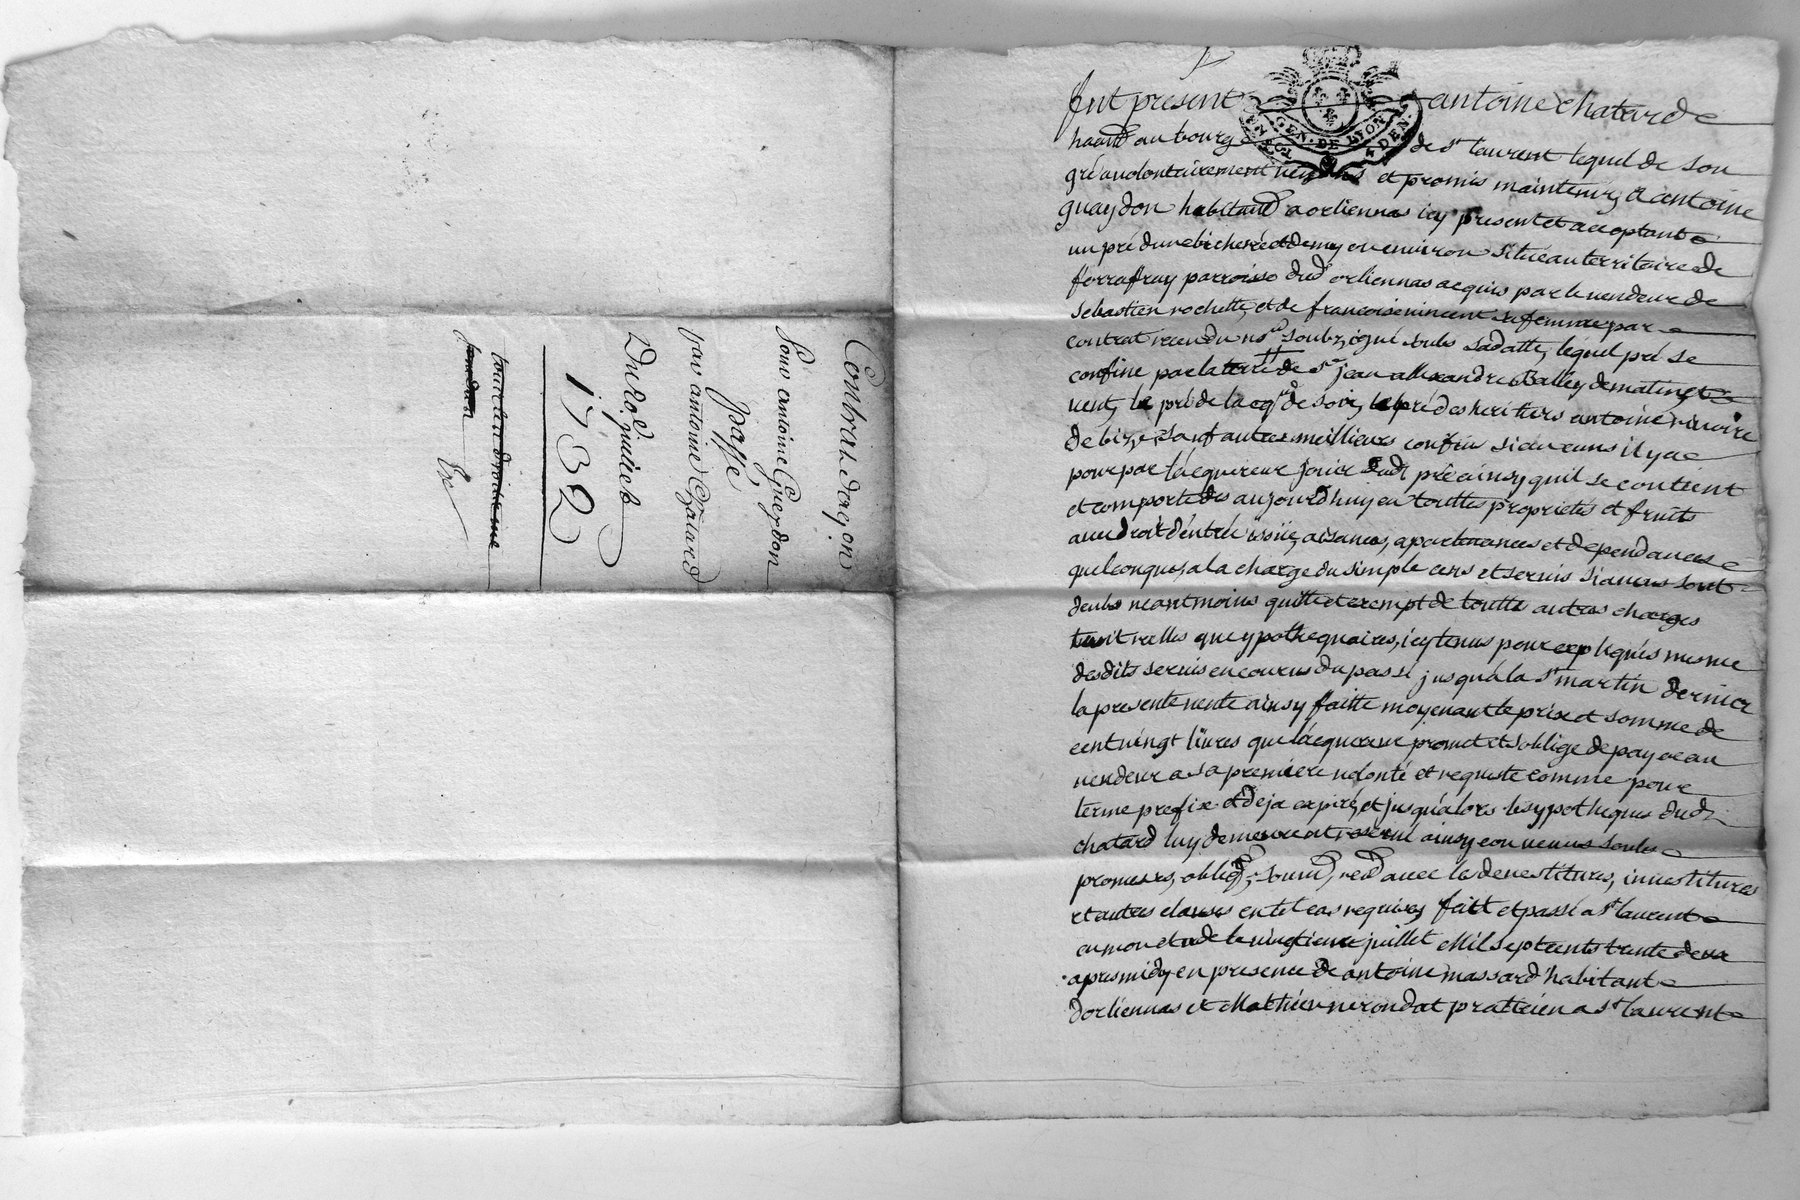 Contrat dacq.on
Pour antoine Gueydon
passé
par antoine Chatard
Du 20.e juillet
1732
fut present antoine chatard
GEN. DE LYON
habitt au bourg de st laurent lequel de son
gré a volontairement vendu et promis maintenir, a antoine
guaydon habitant a orliennas icy present et acceptant
un pré dune bicherée et demy ou environ situé au territoire de
parroisse dud orliennas acquis par le vendeur de
sebastien rochette, et de francoise vincent sa femme par
contrat receu du nore soubzsigné soubs sa datte, lequel pré se
confine par la terre de sr jean allexandre Balley de matin, et
vent, le pré de la de soir, le pré des heritiers antoine rivoire
de bize, sauf autres meillieurs confins si aucuns il y a
pour par lacquereur jouir dudt pré ainsy quil se contient
et comporte des aujourdhuy en touttes proprietés et fruits
avec droit d'entrée issüe, aisances, apartenances et dependances
quelconques, a la charge du simple cens et servis si aucuns sont
deubs neantmoins quitte et exempt de toutte autres charges
tant reelles que ypothequaires, icy tenus pour expliqués mesme
desdits servis encourus du passé jusqu'a la st martin dernier
la presente vente ainsy faitte moyenant le prix et somme de
cent vingt livres que lacquereur promet et s'oblige de payer au
vendeur a sa premiere volonté et requiste comme pour
terme prefix et deja expiré, et jusqu'alors les ypotheques dudt
chatard luy demeurent reservé ainsy convenus soubs
promesses, obligõn, soumõn, renõn avec les devestitures, investitures
et autres clauses en tel cas requises, faitt et passé a st laurent
en mon etude le vingtieme juillet Mil sept cents trente deux
apres midy en presence de antoine massard habitant
dorliennas et Mathieu nerondat pratticien a st laurent